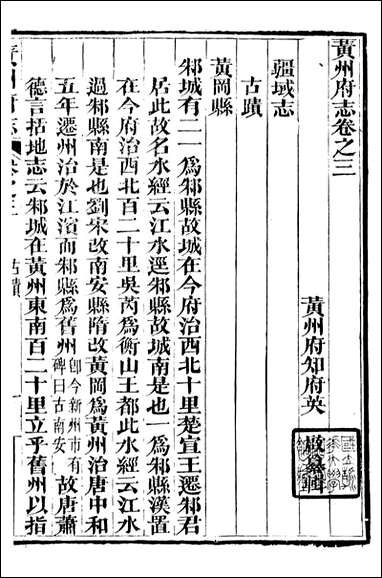 黃州府志卷之三
黃州府知府英
啟纂輯
疆域志
古蹟
黃岡縣
邾城有二一爲邾縣故城在今府治西北十里楚宣王遷邾君
居此故名水經云江水逕邾縣故城南是也一爲邾縣漢置
在今府治西北百二十里吳芮爲衡山王都此水經云江水
過邾縣南是也劉宋改南安縣隋改黃岡爲黃州治唐中和
五年遷州治於江濱而邾縣爲舊州卽今新州市有碑曰古南安故唐蕭
德言括地志云邾城在黃州東南百二十里立乎舊州以指
古蹟